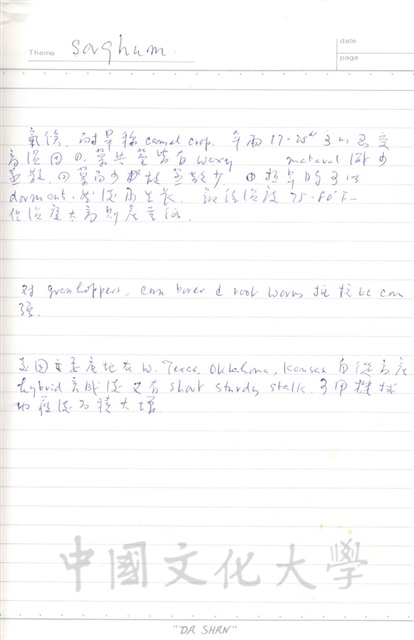 Theme sorghum.
date
page
氣候. 耐旱稱 camel crop. 年雨 17-25" 可以忍受
高溫因の. 葉與莖皆有 waxy material 減少
蒸散. の 葉面少 蒸散少. の 乾旱時可以
dormant. 然後再生長. 70. 75-80°F-
但溫度太高則
对 grasshoppers, corn borer & root worms 抵抗比 corn
强.
美国主要產地在 W. Texas. Oklahoma, Kansas 自從高產
hybrid 育成後又有 short sturdy stalk. 可用機械
收穫後面積大增
中國文化大學
"DR SHAN"